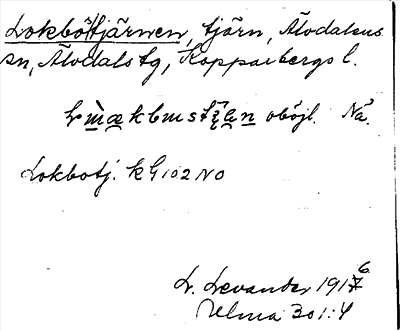 Lokbötjärnen, tjärn, Älvdalens
sn, Älvdals tg, Kopparbergs l.
oböjl. Nä.
Lokbotj. kG102NO
L. Levander 1916
Ulma 301:4